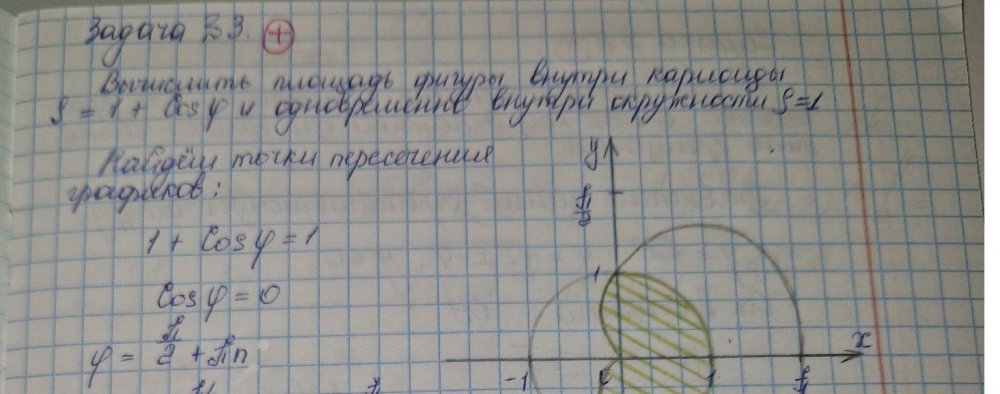 Задача 3.
+
Вычислить площадь фигуры внутри кардиоиды
ρ = 1 + cos φ и одновременно внутри окружности ρ = 1
Найдём точки пересечения
графиков:
1 + cos φ = 1
cos φ = 0
φ = π/2 + πn
y
π/2
1
x
-1
1